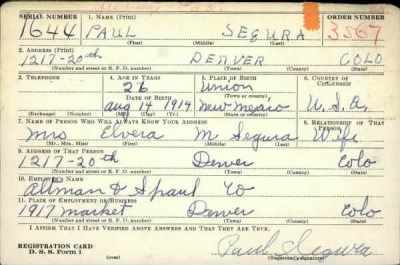 SERIAL NUMBER 1. NAME (Print) ORDER NUMBER
1644 PAUL SEGURA 3567
(First) (Middle) (Last)
2. ADDRESS (Print)
1217-20th DENVER COLO
(Number and street or R. F. D. number) (Town) (County) (State)
3. TELEPHONE 4. AGE IN YEARS 5. PLACE OF BIRTH 6. COUNTRY OF CITIZENSHIP
26 Union
DATE OF BIRTH (Town or county)
Aug 14 1914 New Mexico U.S.A.
(Exchange) (Number) (Mo.) (Day) (Yr.) (State or country)
7. NAME OF PERSON WHO WILL ALWAYS KNOW YOUR ADDRESS 8. RELATIONSHIP OF THAT PERSON
Mrs Elvera M Segura Wife
(Mr., Mrs., Miss) (First) (Middle) (Last)
9. ADDRESS OF THAT PERSON
1217-20th Denver Colo
(Number and street or R. F. D. number) (Town) (County) (State)
10. EMPLOYER'S NAME
Altman & Co
11. PLACE OF EMPLOYMENT OR BUSINESS
1917 Market Denver Colo
(Number and street or R. F. D. number) (Town) (County) (State)
I AFFIRM THAT I HAVE VERIFIED ABOVE ANSWERS AND THAT THEY ARE TRUE.
REGISTRATION CARD
D. S. S. Form 1 (over) Paul Segura
(Registrant's signature)